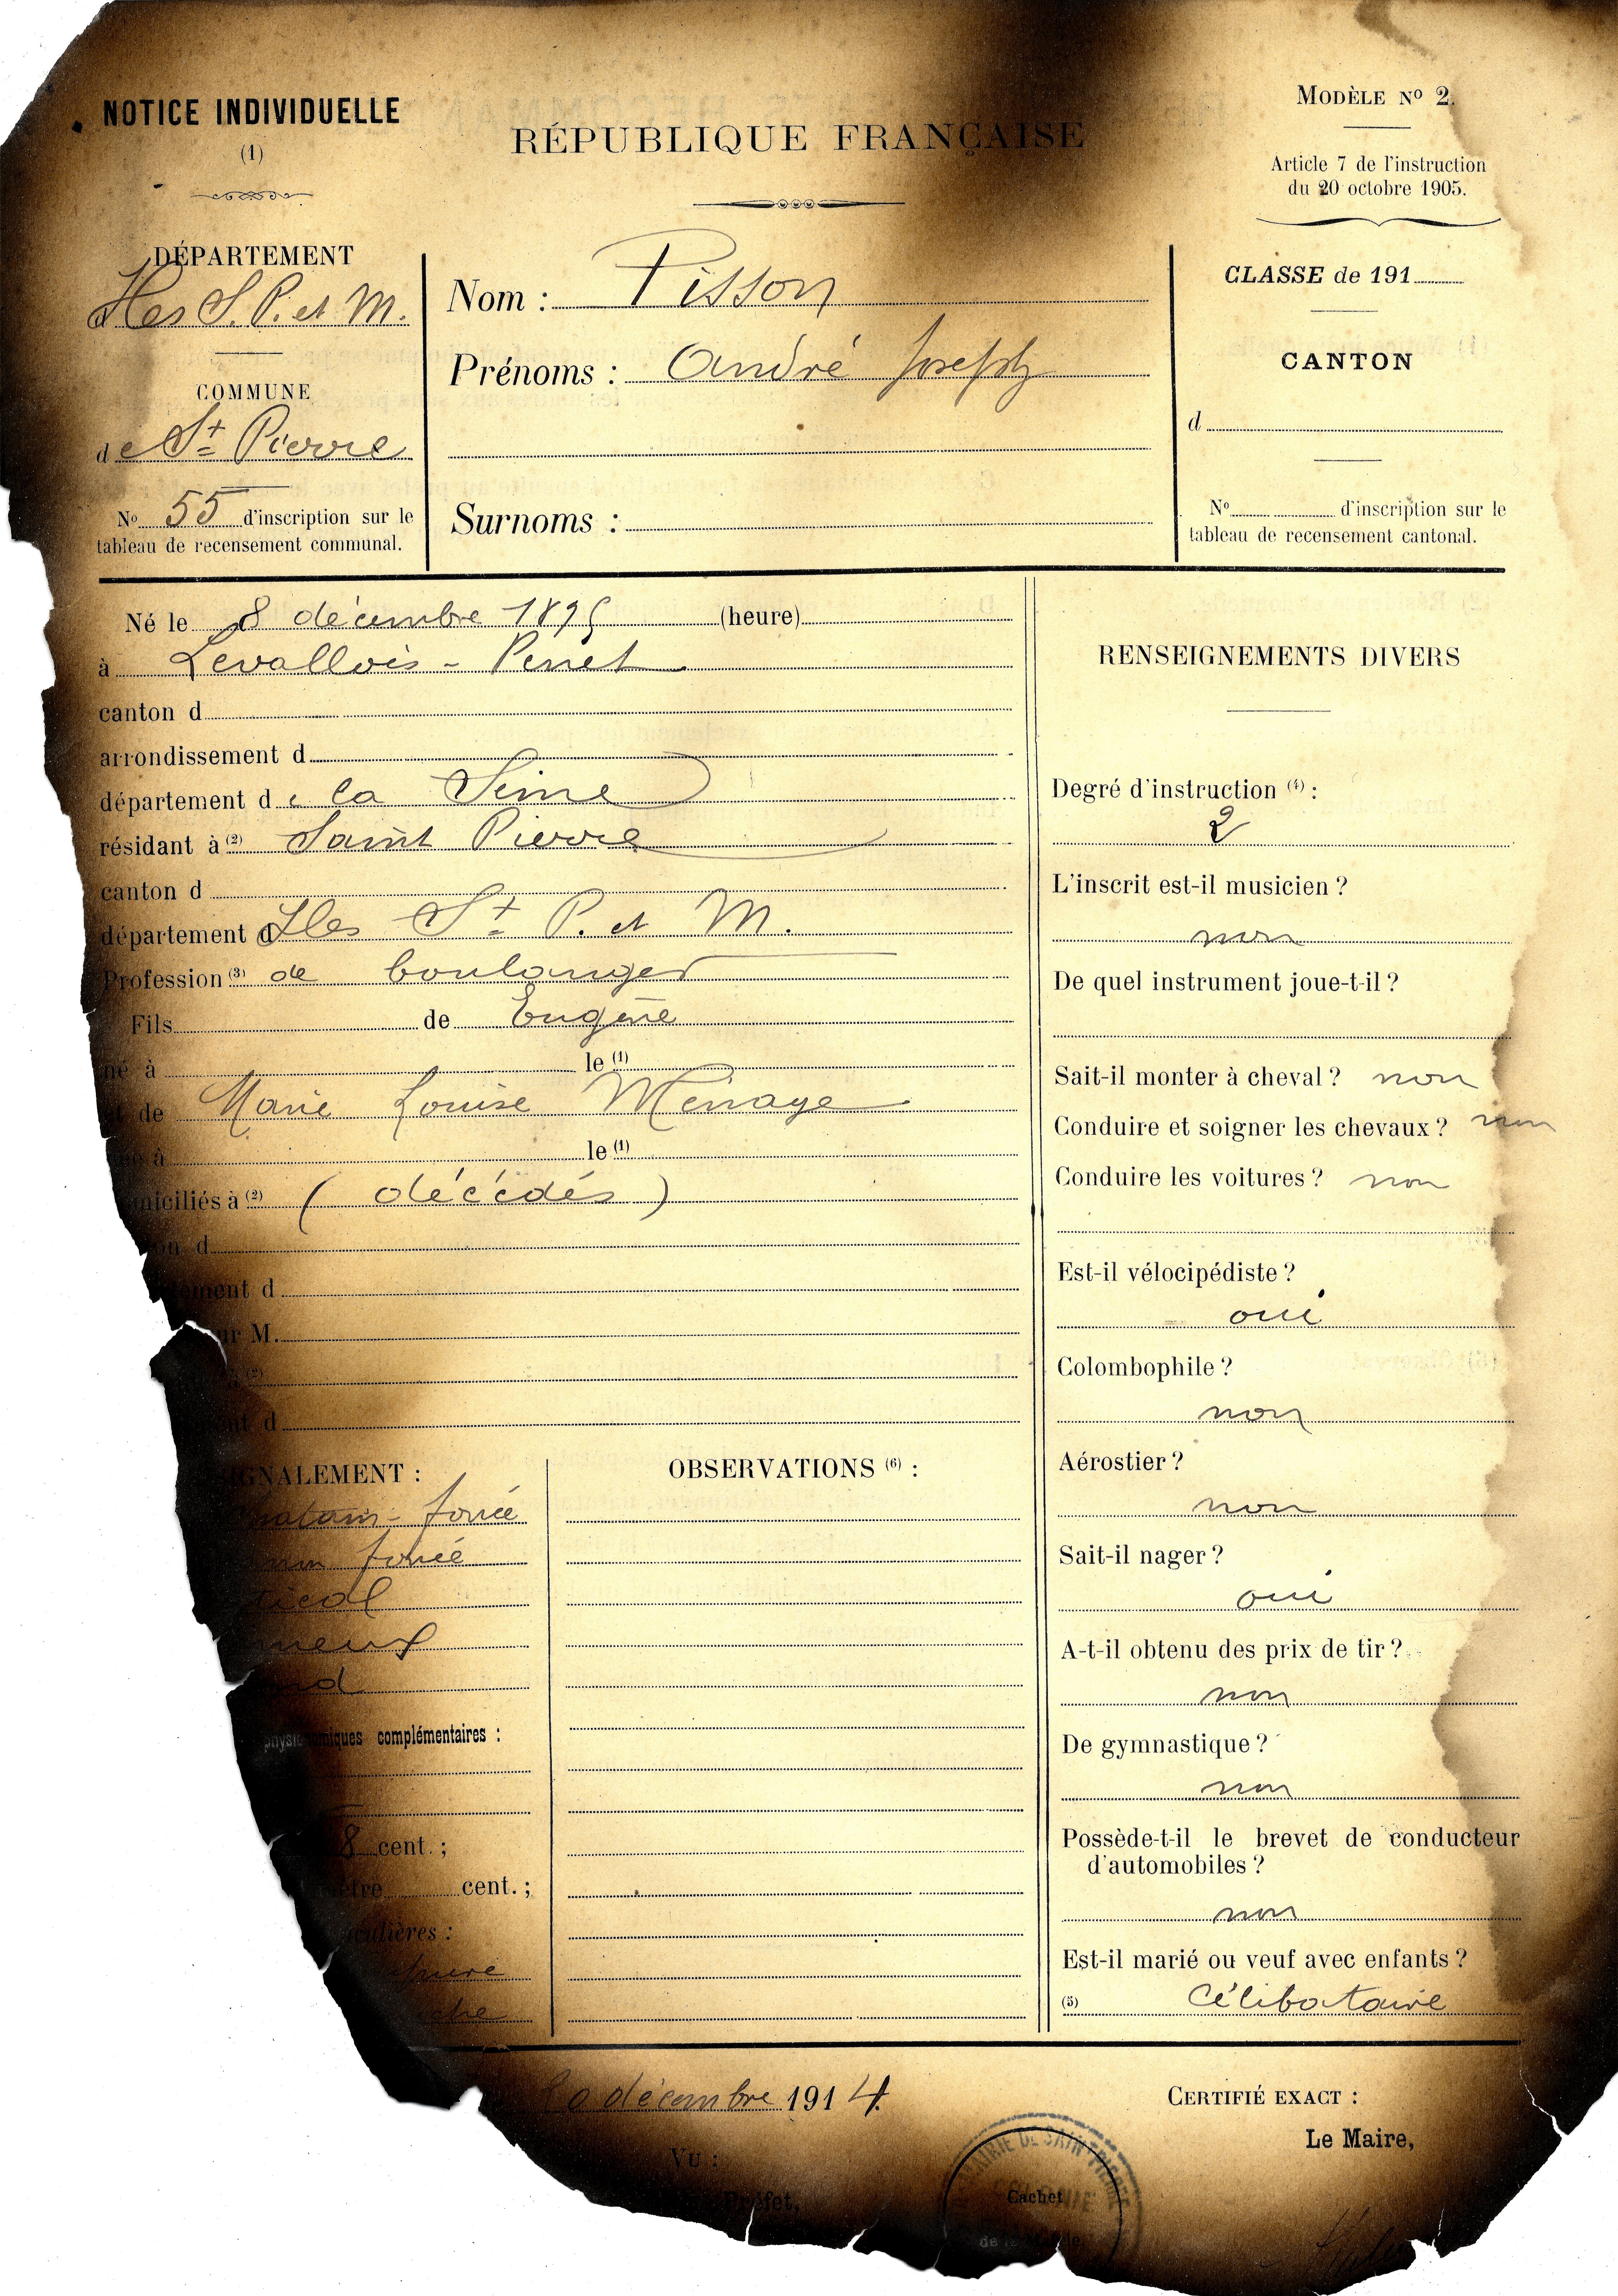 NOTICE INDIVIDUELLE
(1)
RÉPUBLIQUE FRANÇAISE
MODÈLE Nº 2.
Article 7 de l'instruction
du 20 octobre 1905.
DÉPARTEMENT
d Iles S. P. et M.
COMMUNE
de St Pierre
No 55 d'inscription sur le
tableau de recensement communal.
Nom : Pisson
Prénoms : André Joseph
Surnoms :
CLASSE de 191
CANTON
d
No d'inscription sur le
tableau de recensement cantonal.
Né le 8 décembre 1895 (heure)
à Levallois - Perret
canton d
arrondissement d
département de la Seine
résidant à (2) Saint Pierre
canton d
département d Iles St P. et M.
Profession (3) de boulanger
Fils de Eugène
né à le (1)
et de Marie Louise Ménage
à le (1)
miciliés à (2) ( décédés )
on d
tement d
ur M.
(2)
nt d
SIGNALEMENT :
hatain - foncé
foncé
tical
meux
nd
physionomiques complémentaires :
8 cent. ;
mètre cent. ;
culières :
che
OBSERVATIONS (6) :
RENSEIGNEMENTS DIVERS
Degré d'instruction (4) :
2
L'inscrit est-il musicien ?
non
De quel instrument joue-t-il ?
Sait-il monter à cheval ? non
Conduire et soigner les chevaux ? non
Conduire les voitures ? non
Est-il vélocipédiste ?
oui
Colombophile ?
non
Aérostier ?
non
Sait-il nager ?
oui
A-t-il obtenu des prix de tir ?
non
De gymnastique ?
non
Possède-t-il le brevet de conducteur
d'automobiles ?
non
Est-il marié ou veuf avec enfants ?
(5) Célibataire
décembre 1914
VU :
Préfet,
MAIRIE DE SAINT-PIERRE
Cachet
de la
CERTIFIÉ EXACT :
Le Maire,